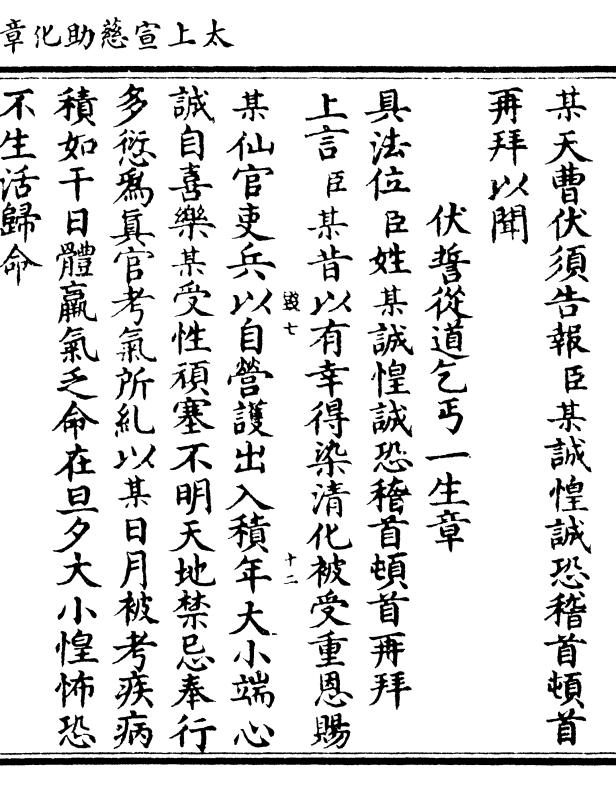 太上宣慈助化章
某天曹伏須告報臣某誠惶誠恐稽首頓首
再拜以聞
伏誓從道乞丐一生章
具法位臣姓某誠惶誠恐稽首頓首再拜
上言臣某昔以有幸得染清化被受重恩賜
毀七
十二
某仙官吏兵以自營護出入積年大小端心
誠自喜樂某受性頑塞不明天地禁忌奉行
多愆爲真官考氣所糺以某日月被考疾病
積如干日體羸氣乏命在旦夕大小惶怖恐
不生活歸命